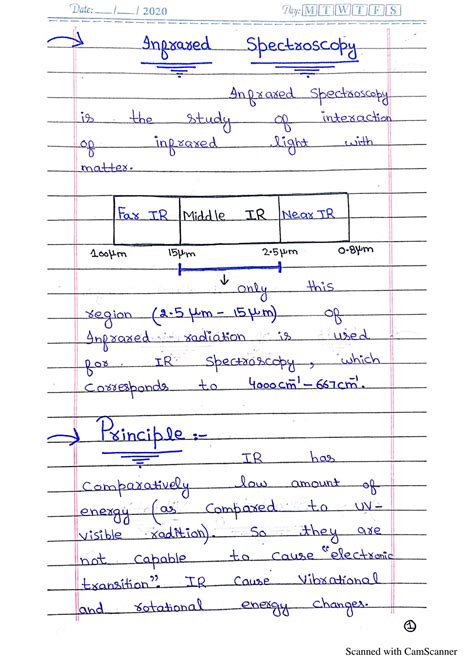 Date: __/__/2020 Day: M T W T F S
Infrared Spectroscopy
Infrared Spectroscopy
is the study of interaction
of infrared light with
matter.
Far IR Middle IR Near IR
100µm 15µm 2.5µm 0.8µm
only this
region (2.5µm – 15µm) of
Infrared radiation is used
for IR Spectroscopy, which
Corresponds to 4000cm⁻¹ – 667cm⁻¹.
Principle :-
IR has
Comparatively low amount of
energy (as Compared to UV-
Visible radition). So they are
not capable to cause "electronic
transition". IR Cause Vibrational
and rotational energy changes.
1
Scanned with CamScanner